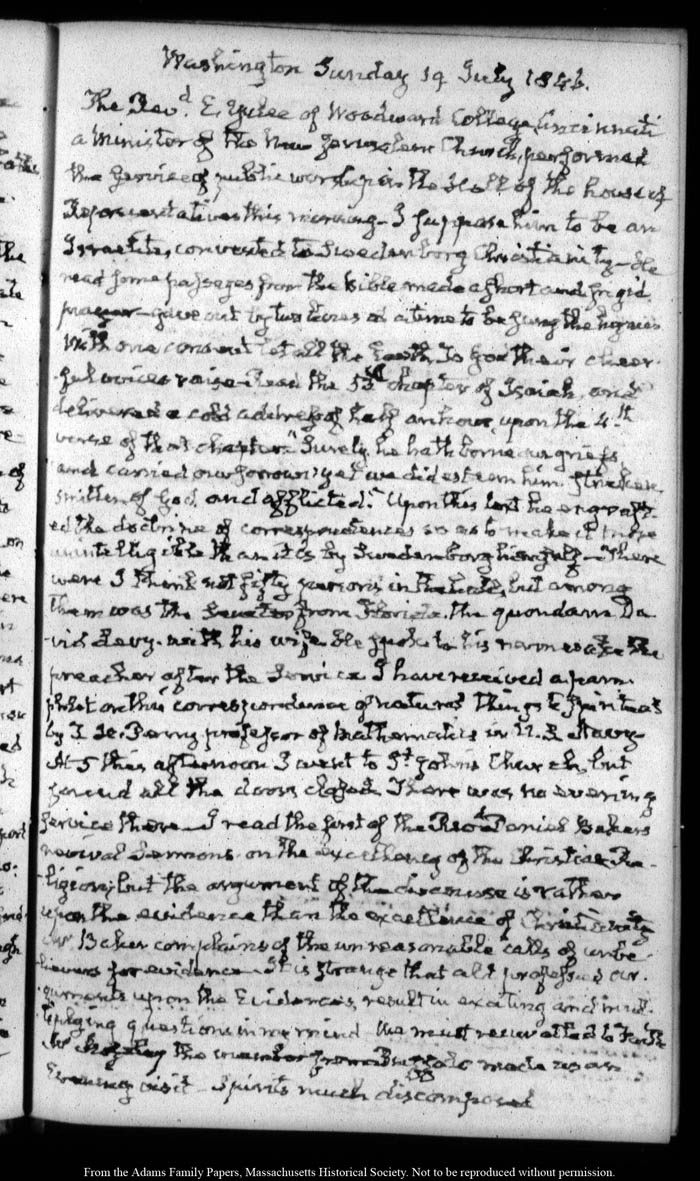 Washington Sunday 19 July 1846.
The Revd. E. Yulee of Woodward College Cincinnati
a Minister of the New Jerusalem Church, performed
the service of public worship in the Hall of the house of
Representatives this morning – I suppose him to be an
Israelite, converted to Swedenborg Christianity – He
read some passages from the bible made a short and frigid
prayer – gave out by two lines at a time to be sung the hymns
With one consent let all the Earth To God their cheer-
ful voices raise – Read the 53d chapter of Isaiah, and
delivered a cold address of half an hour, upon the 4th
verse of that chapter. "Surely he hath borne our griefs,
and carried our sorrows; yet we did esteem him stricken,
smitten of God, and afflicted." Upon this text he engraft-
ed the doctrine of correspondences so as to make it more
unintelligible than it is by Swedenborg himself – There
were I think not fifty persons in the hall, but among
them was the Senator from Florida, the quondam Da-
vid Levy with his wife. He spoke to his namesake the
preacher after the service. I have received a pam-
phlet on this correspondence of natural things to spiritual
by professor of Mathematics in U.S. Navy
At 5 this afternoon I went to St. John's Church, but
found all the doors closed. There was no evening
service there – I read the first of the Revd. Daniel Bakers
revival Sermons on the excellency of the Christian Re-
ligion, but the argument of the discourse is rather
upon the evidence than the excellence of Christianity
Mr Baker complains of the unreasonable calls of unbe-
lievers for evidence – It is strange that all professed ar-
guments upon the Evidences, result in exciting and mul-
tiplying questions in my mind. We must recur at last to Faith
Mr the member from Buffalo made us an
Evening visit – Spirits much discomposed
From the Adams Family Papers, Massachusetts Historical Society. Not to be reproduced without permission.